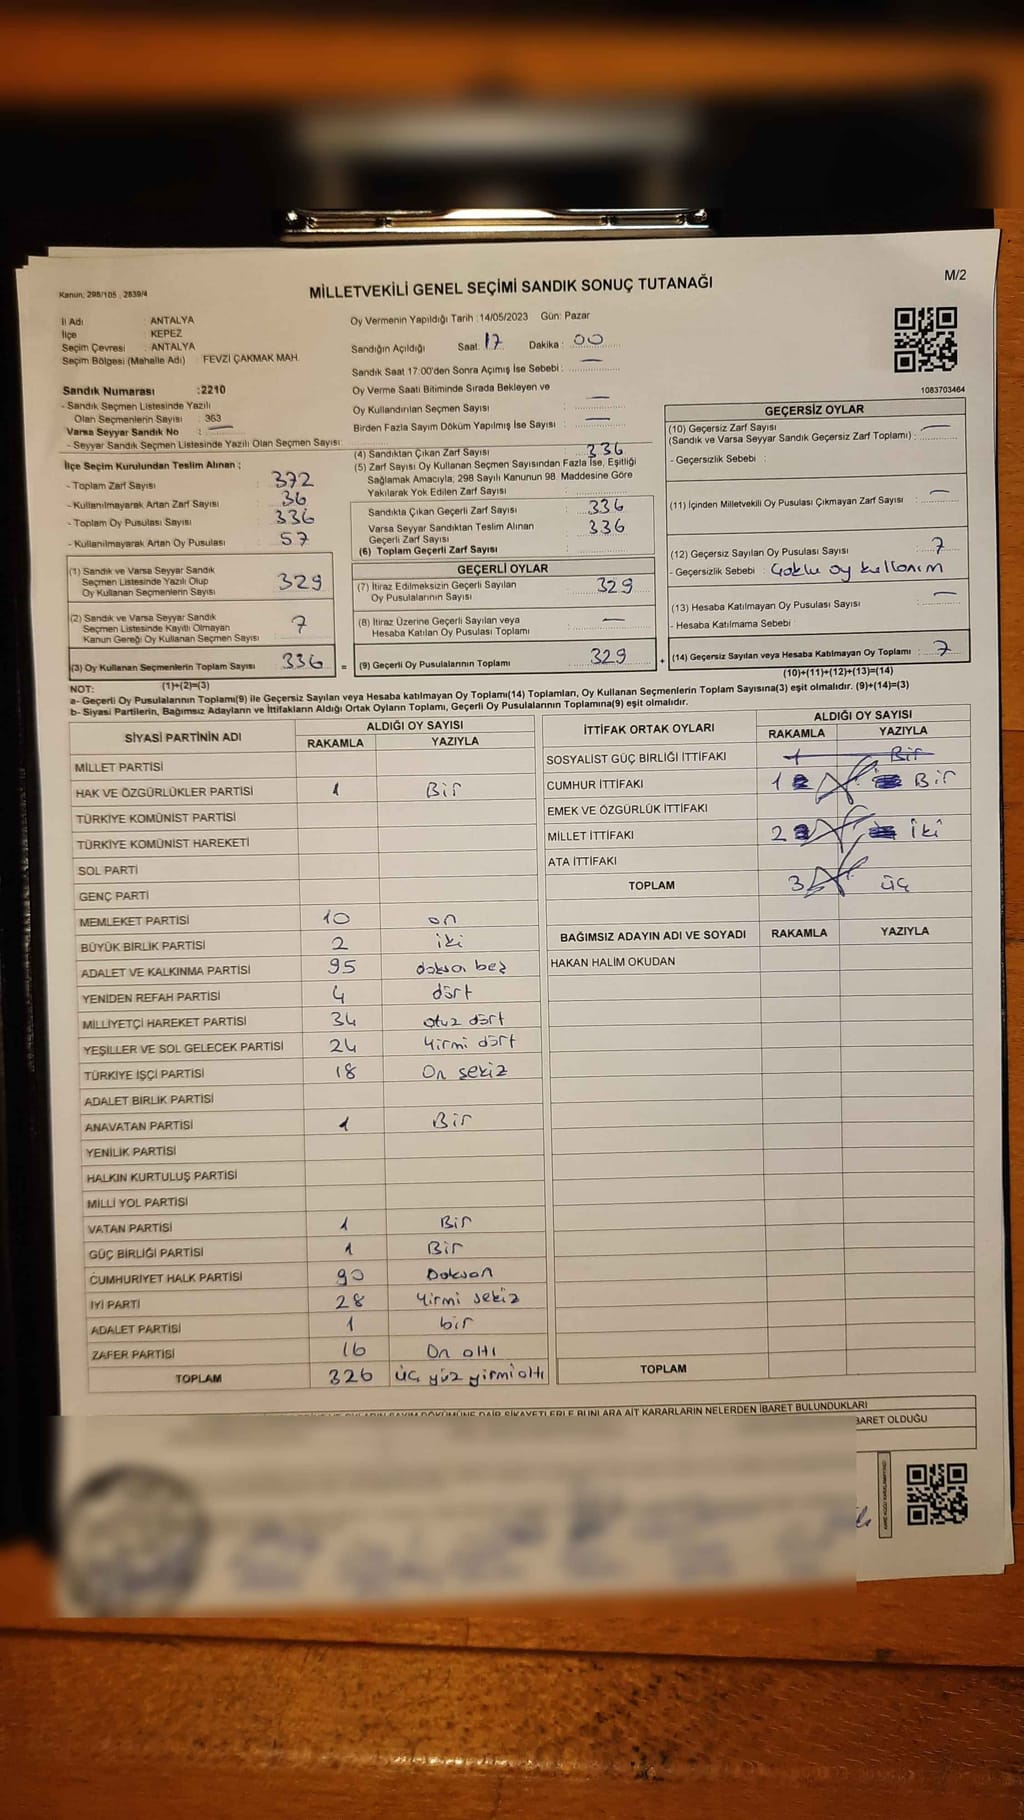 M/2
Kanun: 298/105 , 2839/4
MİLLETVEKİLİ GENEL SEÇİMİ SANDIK SONUÇ TUTANAĞI
İl Adı : ANTALYA
İlçe : KEPEZ
Seçim Çevresi : ANTALYA
Seçim Bölgesi (Mahalle Adı) : FEVZİ ÇAKMAK MAH.
Oy Vermenin Yapıldığı Tarih :14/05/2023 Gün: Pazar
Sandığın Açıldığı Saat: 17 Dakika : 00
Sandık Saat 17:00'den Sonra Açımış İse Sebebi : —
Oy Verme Saati Bitiminde Sırada Bekleyen ve
Oy Kullandırılan Seçmen Sayısı : —
Birden Fazla Sayım Döküm Yapılmış İse Sayısı : —
1083703464
Sandık Numarası :2210
- Sandık Seçmen Listesinde Yazılı
Olan Seçmenlerin Sayısı : 363
Varsa Seyyar Sandık No : —
- Seyyar Sandık Seçmen Listesinde Yazılı Olan Seçmen Sayısı:
İlçe Seçim Kurulundan Teslim Alınan ;
- Toplam Zarf Sayısı : 372
- Kullanılmayarak Artan Zarf Sayısı : 36
- Toplam Oy Pusulası Sayısı : 336
- Kullanılmayarak Artan Oy Pusulası : 57
(1) Sandık ve Varsa Seyyar Sandık
Seçmen Listesinde Yazılı Olup
Oy Kullanan Seçmenlerin Sayısı : 329
(2) Sandık ve Varsa Seyyar Sandık
Seçmen Listesinde Kayıtlı Olmayan
Kanun Gereği Oy Kullanan Seçmen Sayısı : 7
(3) Oy Kullanan Seçmenlerin Toplam Sayısı : 336 =
(1)+(2)=(3)
(4) Sandıktan Çıkan Zarf Sayısı : 336
(5) Zarf Sayısı Oy Kullanan Seçmen Sayısından Fazla İse, Eşitliği
Sağlamak Amacıyla; 298 Sayılı Kanunun 98. Maddesine Göre
Yakılarak Yok Edilen Zarf Sayısı :
Sandıkta Çıkan Geçerli Zarf Sayısı : 336
Varsa Seyyar Sandıktan Teslim Alınan
Geçerli Zarf Sayısı : 336
(6) Toplam Geçerli Zarf Sayısı :
GEÇERLİ OYLAR
(7) İtiraz Edilmeksizin Geçerli Sayılan
Oy Pusulalarının Sayısı : 329
(8) İtiraz Üzerine Geçerli Sayılan veya
Hesaba Katılan Oy Pusulası Toplamı : —
(9) Geçerli Oy Pusulalarının Toplamı : 329 +
GEÇERSİZ OYLAR
(10) Geçersiz Zarf Sayısı
(Sandık ve Varsa Seyyar Sandık Geçersiz Zarf Toplamı) : —
- Geçersizlik Sebebi :
(11) İçinden Milletvekili Oy Pusulası Çıkmayan Zarf Sayısı : —
(12) Geçersiz Sayılan Oy Pusulası Sayısı : 7
- Geçersizlik Sebebi : Çoklu oy kullanım
(13) Hesaba Katılmayan Oy Pusulası Sayısı : —
- Hesaba Katılmama Sebebi :
(14) Geçersiz Sayılan veya Hesaba Katılmayan Oy Toplamı : 7
(10)+(11)+(12)+(13)=(14)
NOT:
a- Geçerli Oy Pusulalarının Toplamı(9) ile Geçersiz Sayılan veya Hesaba katılmayan Oy Toplamı(14) Toplamları, Oy Kullanan Seçmenlerin Toplam Sayısına(3) eşit olmalıdır. (9)+(14)=(3)
b- Siyasi Partilerin, Bağımsız Adayların ve İttifakların Aldığı Ortak Oyların Toplamı, Geçerli Oy Pusulalarının Toplamına(9) eşit olmalıdır.
SİYASİ PARTİNİN ADI ALDIĞI OY SAYISI
RAKAMLA YAZIYLA
MİLLET PARTİSİ
HAK VE ÖZGÜRLÜKLER PARTİSİ 1 Bir
TÜRKİYE KOMÜNİST PARTİSİ
TÜRKİYE KOMÜNİST HAREKETİ
SOL PARTİ
GENÇ PARTİ
MEMLEKET PARTİSİ 10 on
BÜYÜK BİRLİK PARTİSİ 2 iki
ADALET VE KALKINMA PARTİSİ 95 doksan beş
YENİDEN REFAH PARTİSİ 4 dört
MİLLİYETÇİ HAREKET PARTİSİ 34 otuz dört
YEŞİLLER VE SOL GELECEK PARTİSİ 24 Yirmi dört
TÜRKİYE İŞÇİ PARTİSİ 18 On sekiz
ADALET BİRLİK PARTİSİ
ANAVATAN PARTİSİ 1 Bir
YENİLİK PARTİSİ
HALKIN KURTULUŞ PARTİSİ
MİLLİ YOL PARTİSİ
VATAN PARTİSİ 1 Bir
GÜÇ BİRLİĞİ PARTİSİ 1 Bir
CUMHURİYET HALK PARTİSİ 90 Doksan
İYİ PARTİ 28 Yirmi sekiz
ADALET PARTİSİ 1 bir
ZAFER PARTİSİ 16 On altı
TOPLAM 326 üç yüz yirmi altı
İTTİFAK ORTAK OYLARI ALDIĞI OY SAYISI
RAKAMLA YAZIYLA
SOSYALİST GÜÇ BİRLİĞİ İTTİFAKI 1 Bir
CUMHUR İTTİFAKI 1 Bir
EMEK VE ÖZGÜRLÜK İTTİFAKI
MİLLET İTTİFAKI 2 iki
ATA İTTİFAKI
TOPLAM 3 üç
BAĞIMSIZ ADAYIN ADI VE SOYADI RAKAMLA YAZIYLA
HAKAN HALİM OKUDAN
TOPLAM
ŞİKAYETLERLE BUNLARA AİT KARARLARIN NELERDEN İBARET BULUNDUKLARI
İBARET OLDUĞU